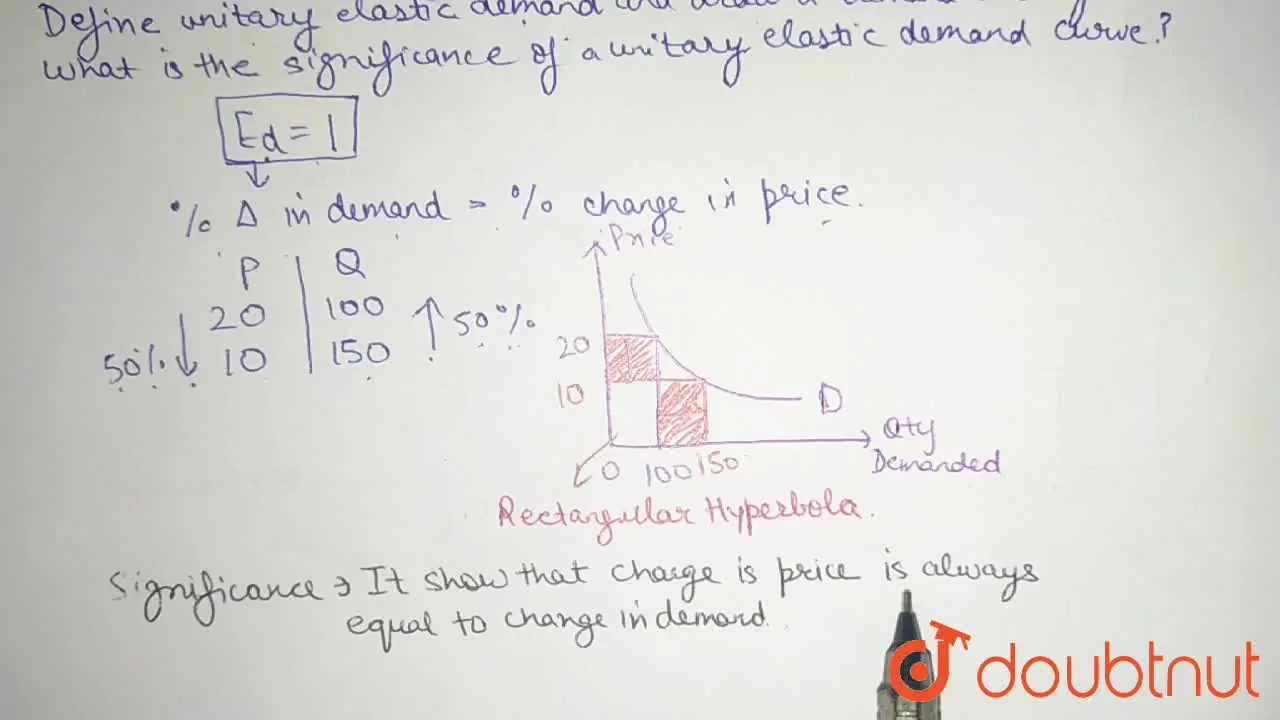 Define unitary elastic demand and draw a demand
What is the significance of a unitary elastic demand curve?
Ed = 1
% Δ in demand = % change in price.
P Q
20 100
50% 10 150 50%
Price
20
10
D
Qty
Demanded
0 100 150
Rectangular Hyperbola.
Significance → It show that change is price is always
equal to change in demand.
doubtnut